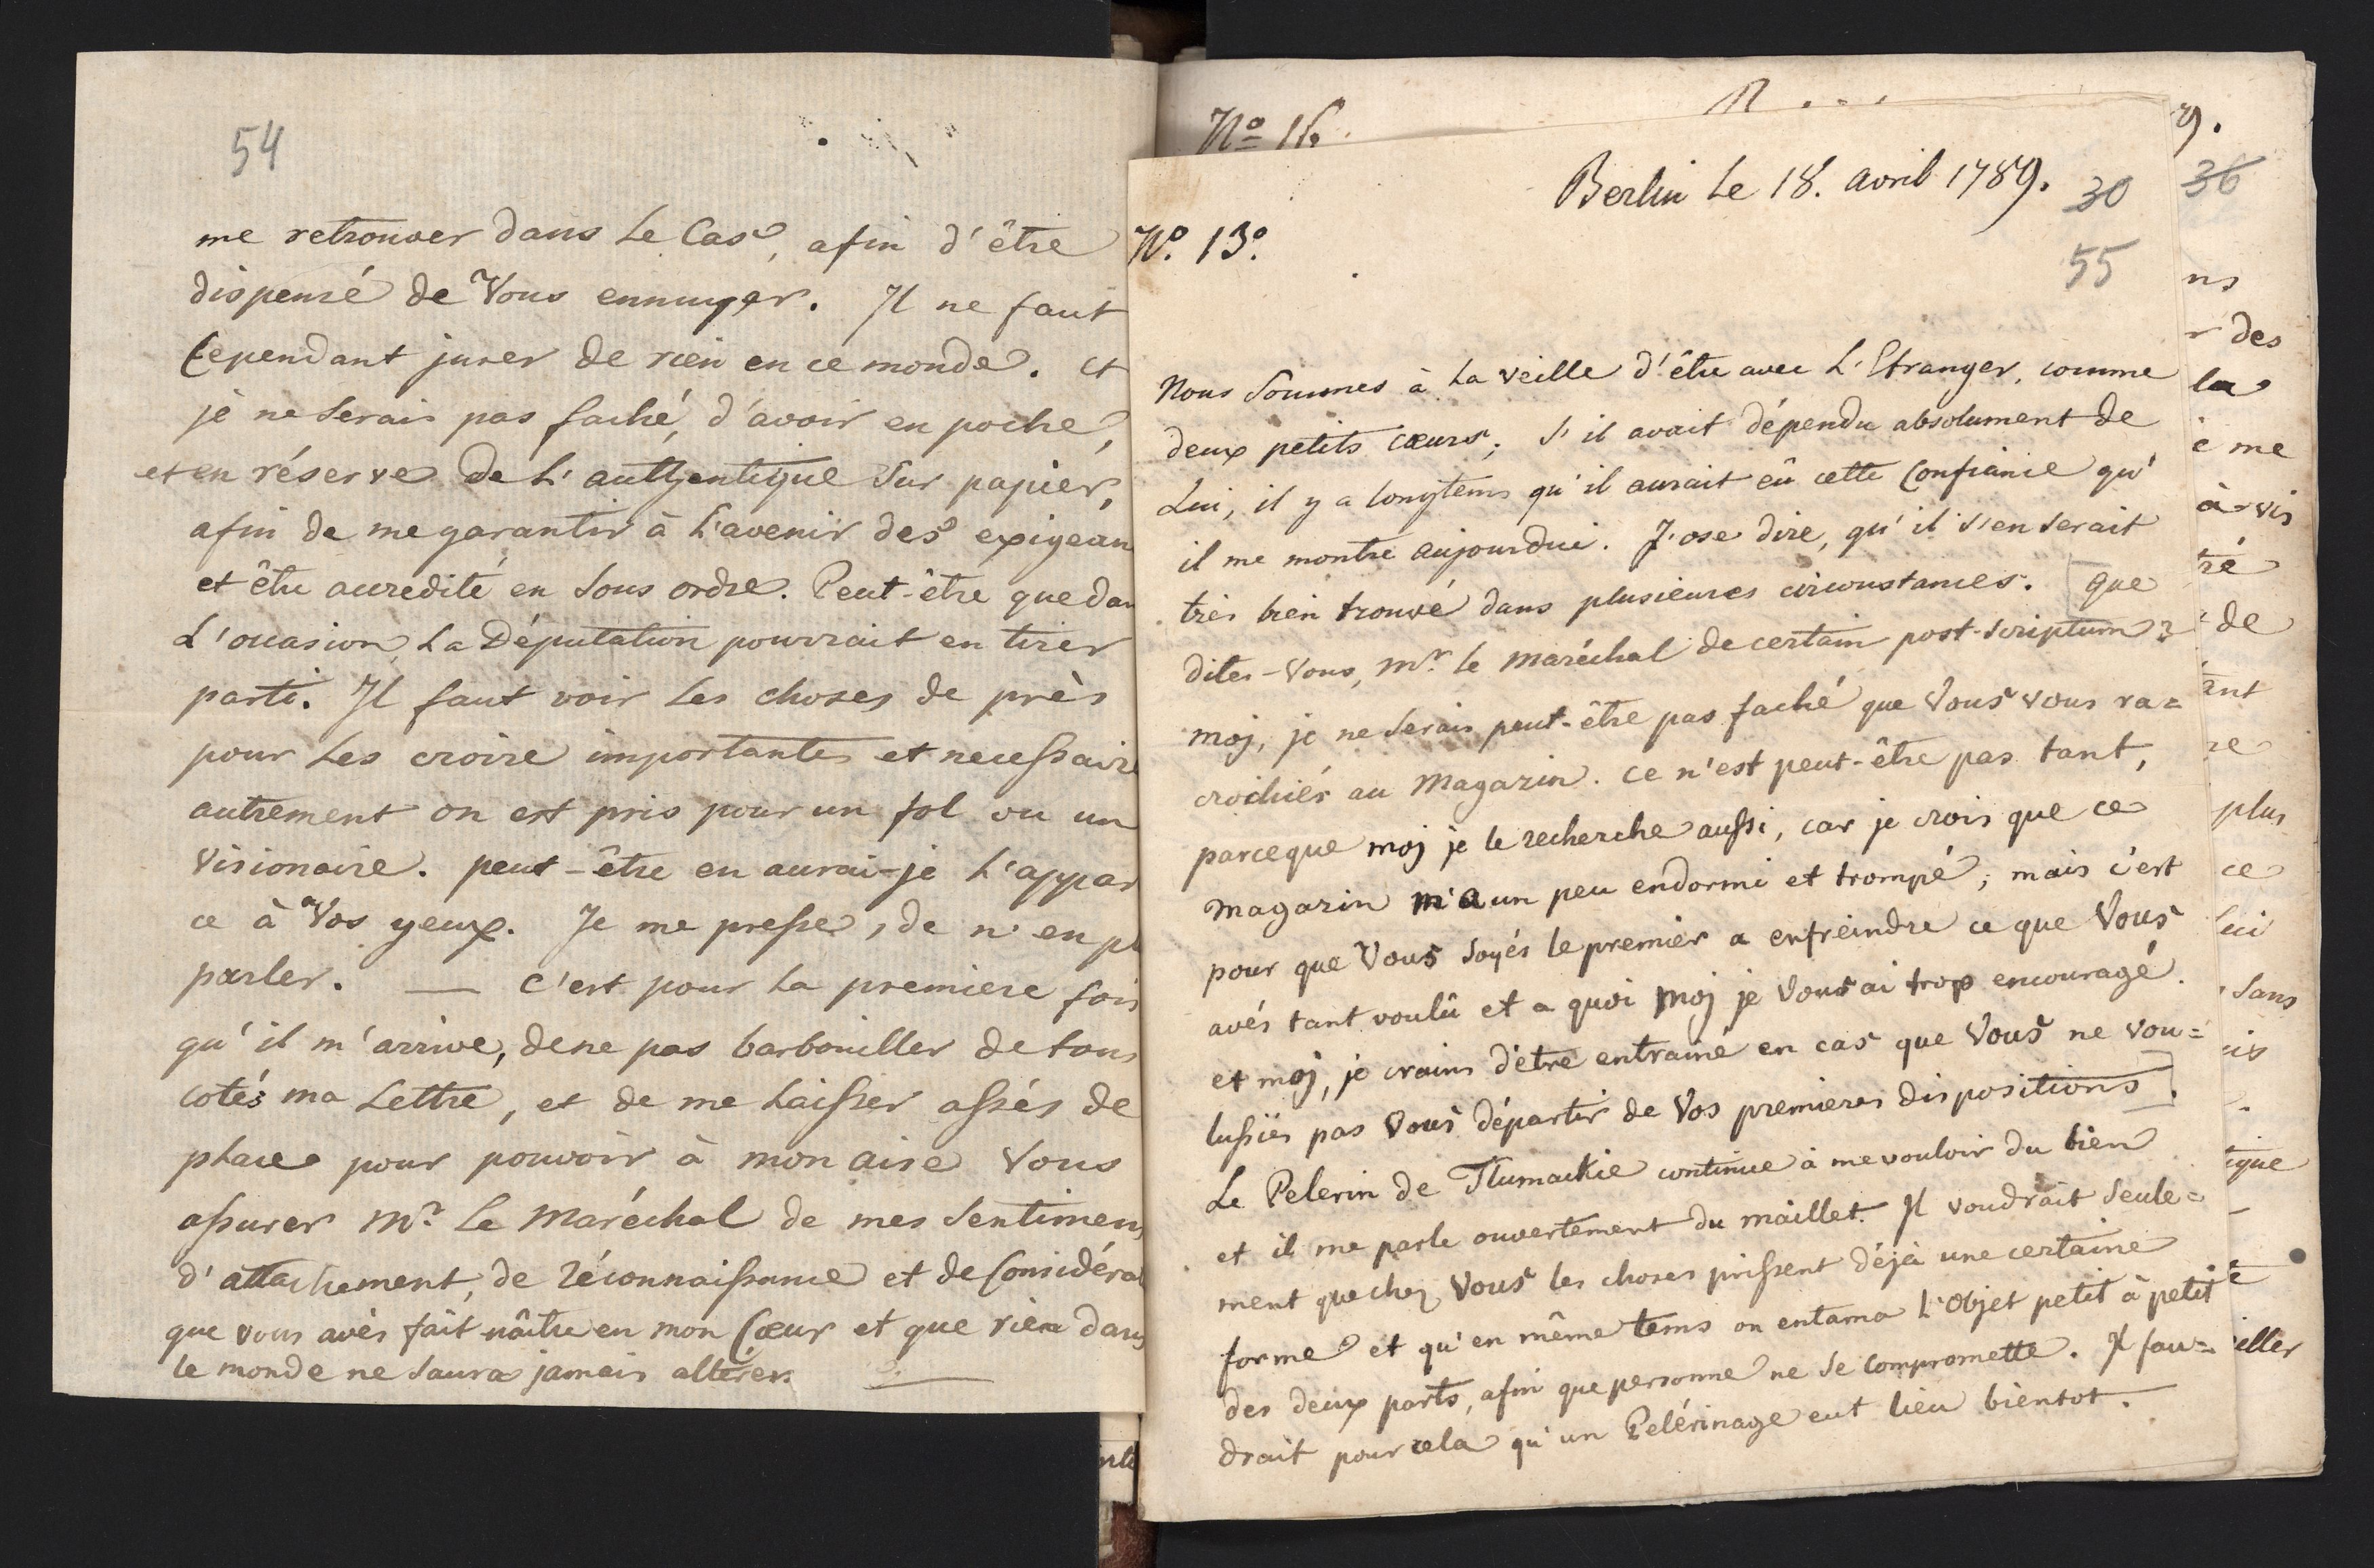 54
me retrouver dans le Cas, afin d'être
dispensé de Vous ennuyer. Il ne faut
Cependant jurer de rien en ce monde. et
je ne serais pas faché, d'avoir en poche,
et en réserve de L'authentique sur papier,
afin de me garantir à L'avenir des exigean
et être accredité en sous ordre. Peut-être que dan
L'occasion, La Députation pourrait en tirer
parti. Il faut voir les choses de près
pour les croire importantes et necessaire
autrement on est pris pour un fol ou un
visionaire. peut-être en aurai-je l'appar
ce à Vos yeux. Je me presse, de n'en pl
parler. — C'est pour la premiere fois
qu'il m'arrive, de ne pas barbouiller de tous
cotés ma Lettre, et de me laisser assés de
place pour pouvoir à mon aise Vous
assurer Mr. le Maréchal de mes sentimens
d'attachement, de réconnaissance et de Considéra
que vous avés fait naître en mon Cœur et que rien dans
le monde ne saura jamais altérer.
No 16.
Berlin le 18. avril 1789.
30
No. 13.
55
Nous sommes à la veille d'être avec L'Etranger, comme
deux petits cœurs; s'il avait dépendu absolument de
Lui, il y a longtems qu'il aurait eû cette Confiance qu'
il me montre aujourdui. J'ose dire, qu'il s'en serait
très bien trouvé dans plusieures circonstances. [que
dites-Vous, Mr. le maréchal de certain post-scriptum?
moj, je ne serais peut-être pas faché que Vous vous ra=
crochiés au Magazin. Ce n'est peut-être pas tant,
parceque moj je le recherche aussi, car je crois que ce
magazin m'a un peu endormi et trompé; mais c'est
pour que Vous soyés le premier a enfreindre ce que Vous
avés tant voulû et a quoi moj je Vous ai trop encouragé.
et moj, je crains d'être entrainé en cas que Vous ne vou=
lussiés pas Vous départir de Vos premieres dispositions].
Le Pelerin de Tlumackie continue à me vouloir du bien
et il me parle ouvertement du maillet. Il voudrait seule=
ment que chez Vous les choses prissent déjà une certaine
forme et qu'en même tems on entama L'Objet petit à petit
des deux parts, afin que personne ne se compromette. Il fau=
drait pour cela qu'un Pelérinage eut lieu bientot.
9.
36
ns
r des
la
é me
à-vis
tré
de
ant
re
plus
ce
lui
sans
ique
iller